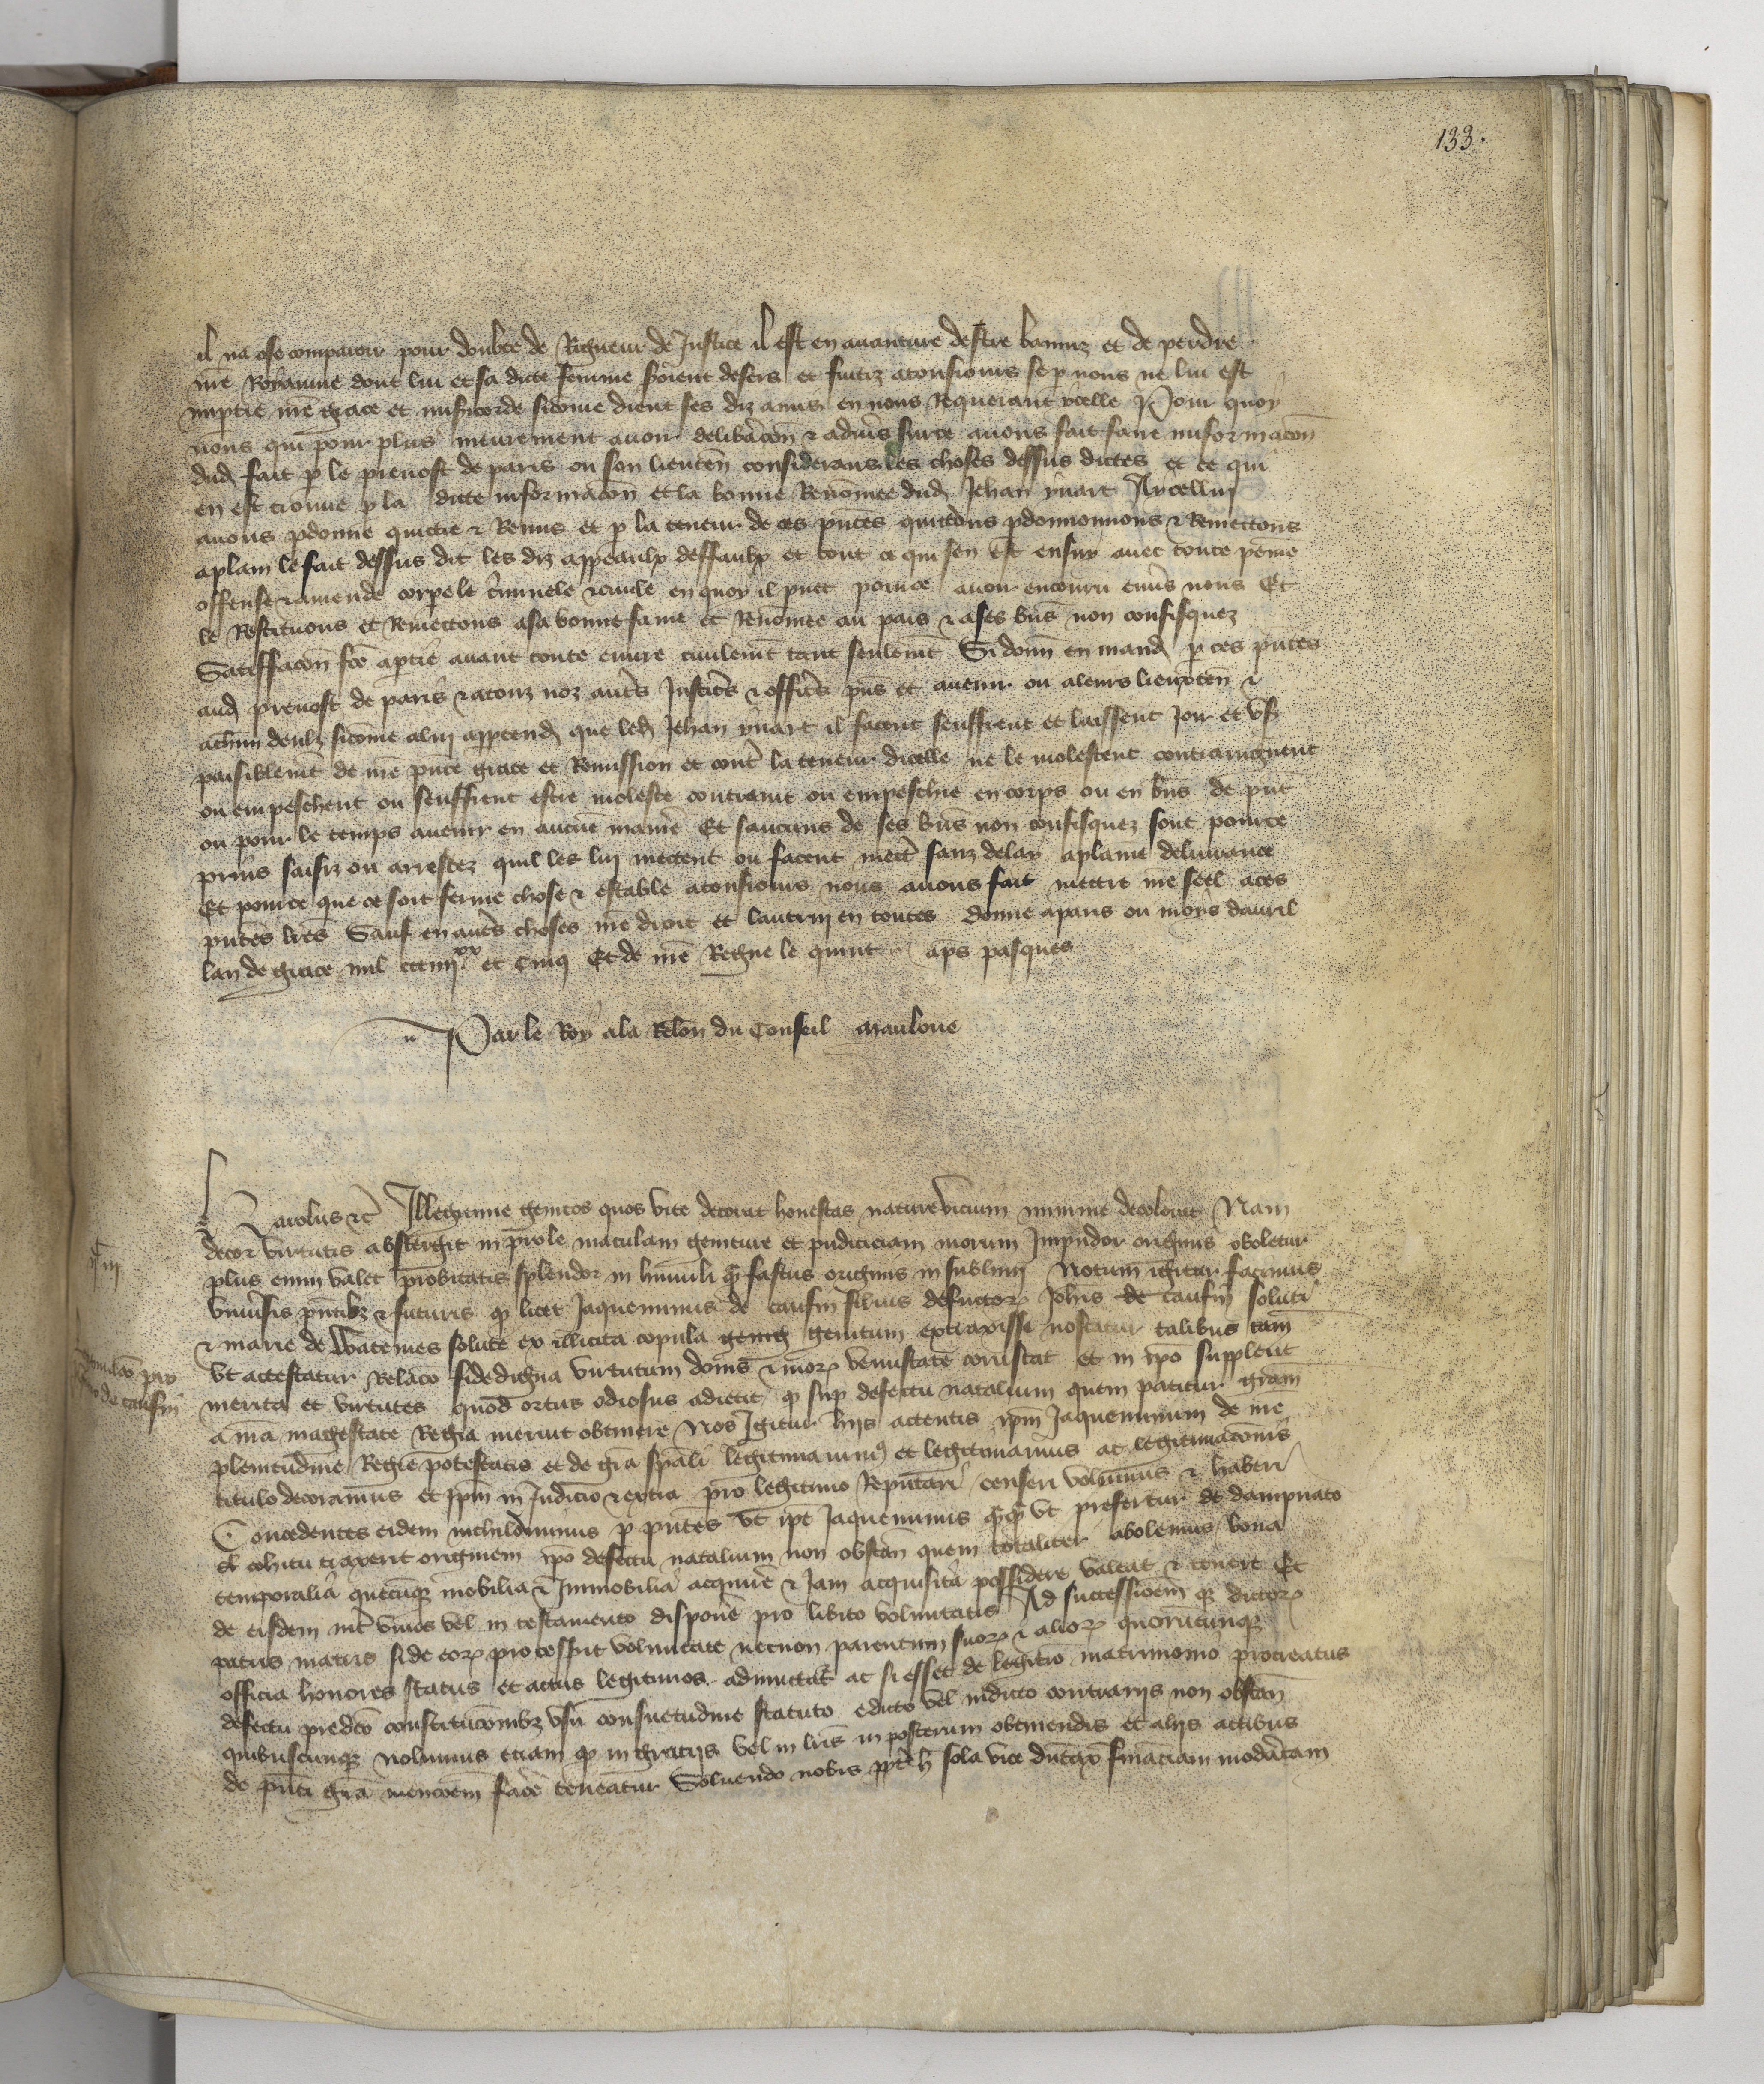 133.
il na ose comparoir pour doubte de Rigueur de Justice il est en auanture destre banniz et de perdre
nre Royaume dont lui et sa dicte femme seroient desers et fuitiz atousiours se p nous ne lui est
impartie nre grace et misericorde sicome dient ses diz amis en nous Requerant ycelle Pour quoy
nous qui pour plus meurement auoir deliberacon & aduis surce auons fait faire informacon
dud fait p le preuost de paris ou son lieuten considerans les choses dessus dictes et ce qui
en est trouue p la dicte informacon et la bonne Renomee dud Jehan yuart A ycellui
auons pdonne quictie & Remis et p la teneur de ces pntes quictons pdonnonnons & Remettons
aplain le fait dessus dit les diz appeaulx deffaulx et tout ce qui sen est ensuy auec toute peine
offense & amende corpele criminele & ciuile en quoy il puet pource auoir encouru enuers nous Et
le Restituons et Remettons asa bonne fame et Renomee au pais & ases biens non confisquez
Satiffacon fce aptie auant toute euure ciuilemt tant seulemt Si donn en mand p ces pntes
aud preuost de paris & atouz noz autres Justiciers & officiers pns et auenir ou aleurs lieuxten &
achun deulx sicome alui apptendr que led Jehan yuart il facent seuffrent et laissent Joir et user
paisiblemt de nre pnte grace et Remission et contre la teneur dicelle ne le molestent contraingnent
ou empeschent ou seuffrent estre moleste contraint ou empeschie en corps ou en biens de pnt
ou pour le temps auenir en aucune maniere Et saucuns de ses biens non confisquez sont pource
prins saisiz ou arrestez quil les lui mettent ou facent mettre sanz delay aplaine deliurance
Et pource que ce soit ferme chose & estable atousiours nous auons fait mettre nre seel aces
pntes lres Sauf en autres choses nre droit et lautrui en toutes donne aparis ou moys dauril
lan de grace mil ccciiijxx et cinq Et de nre Regne le quint aps pasques
Par le Roy ala Relon du Conseil Mauloue
Karolus &c Illegitime genitos quos vite decorat honestas nature vicium minime decolorat Nam
decor virtutis abstergit in prole maculam geniture et pudiciciam morum Impudor originis aboletur
plus enim valet probitatis splendor in humili q fastus originis in sublimi Notum igitur facimus
vniuersis pntibz & futuris q licet Jaqueminus de caufin filius defuctor Johis de caufin soluti
& marie de Watemes solute ex illicita copula genitum extraxisse noscatur talibus tam
vt attestatur Relaco fidedigna virtutum donis & mor venustate coruscat et in ipo supplent
merita et virtutes quod ortus odiosus adiecit q sup defectu natalium quem patitur gram
a nra magestate Regia meruit obtinere Nos Igitur hiis attentis ipm Jaqueminum de nre
plenitudine Regie potestatis et de gra spali legitimauimus et legitimamus ac legitimaconis
titulo decoramus et Ipm in Judicio & extra pro legitimo Reputari censeri volumus & haberi
Concedentes eidem nichilominus p pntes vt ipe Jaqueminus qq vt prefertur de dampnato
cohitu traxerit originem ipo defectu natalium non obstan quem totaliter abolemus bona
temporalia quecunq mobilia & Immobilia acquire & Jam acquisita possidere valeat & tenere Et
de eisdem inter viuos vel in testamento disponere pro libito voluntatis Ad successionem q dictor
patris matris si de eor processerit voluntate necnon parentum suor & alior quorucunq
officia honores status et actus legitimos admittatur ac si esset de legitio matrimonio procreatus
defectu predco constitucombz vsu consuetudine statuto edicto vel indicto contrariis non obstan
quibuscunq volumus etiam q in gratiis vel in lris in posterum obtinendis et aliis actibus
de pnti gra mencoem facere teneatur Soluendo nobis pptr h sola vice dutax financiam moderatam